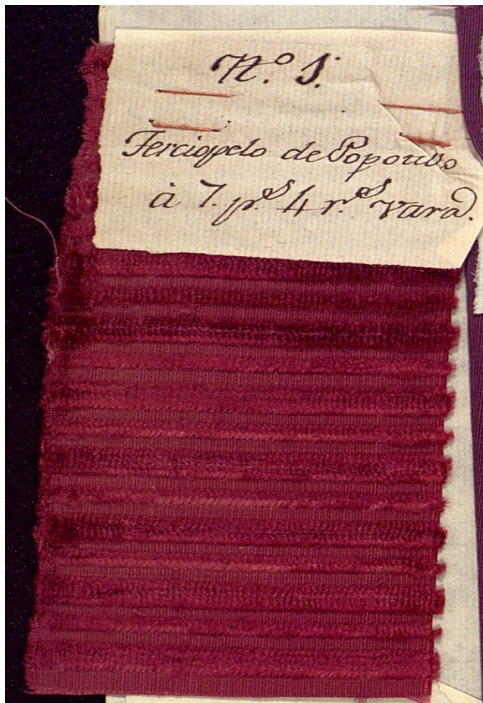 N.º 1.
Terciopelo de Popotillo
à 7. p.s 4 r.s vara.